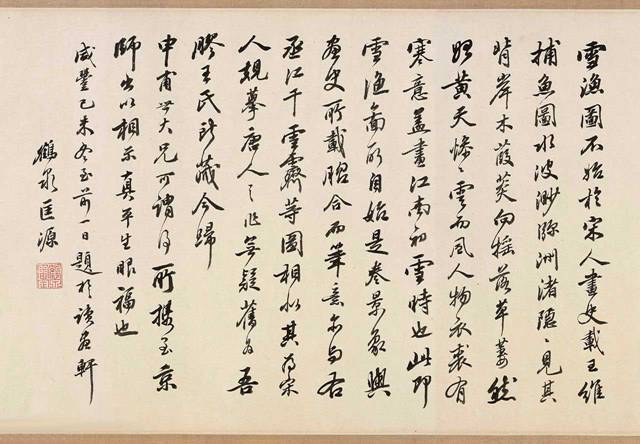 雪漁圖不始於宋人畫史載王維
捕魚圖水波渺瀰洲渚隱〻見其
背岸木葭菼向搖落草萋然
始黃天慘〻雲而風人物衣裘有
寒意蓋畫江南初雪時也此即
雪漁圖所自始是卷景象與
畫史所載脗合而筆意亦與右
丞江干雪霽等圖相似其為宋
人規摹唐人之作無疑舊為吾
膠王氏所藏今歸
中甫世大兄可謂得所攜至京
師出以相示真平生眼福也
咸豐己未冬至前一日題於讀畫軒
鶴泉匡源